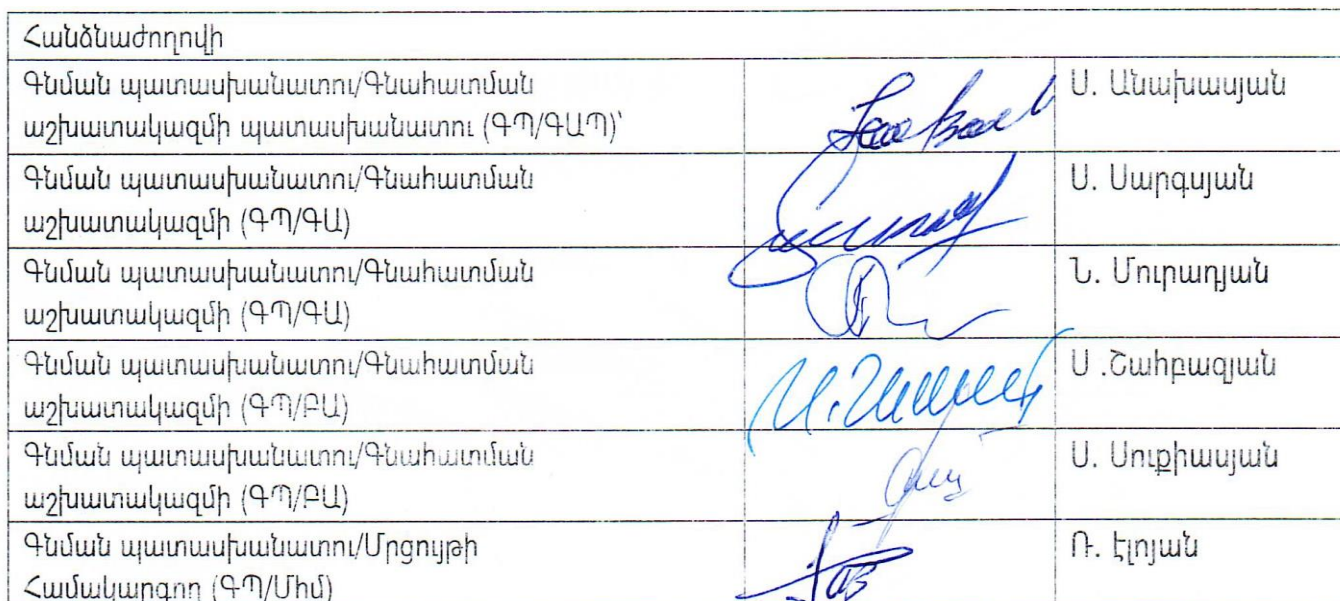 Հանձնաժողովի
Գնման պատասխանատու/Գնահատման
աշխատակազմի պատասխանատու (ԳՊ/ԳԱՊ)՝
Ս. Անախասյան
Գնման պատասխանատու/Գնահատման
աշխատակազմի (ԳՊ/ԳԱ)
Ս. Սարգսյան
Գնման պատասխանատու/Գնահատման
աշխատակազմի (ԳՊ/ԳԱ)
Ն. Մուրադյան
Գնման պատասխանատու/Գնահատման
աշխատակազմի (ԳՊ/ԲԱ)
Ս .Շահբազյան
Գնման պատասխանատու/Գնահատման
աշխատակազմի (ԳՊ/ԲԱ)
Ս. Սուքիասյան
Գնման պատասխանատու/Մրցույթի
Համակարգող (ԳՊ/Միմ)
Ռ. Էլոյան